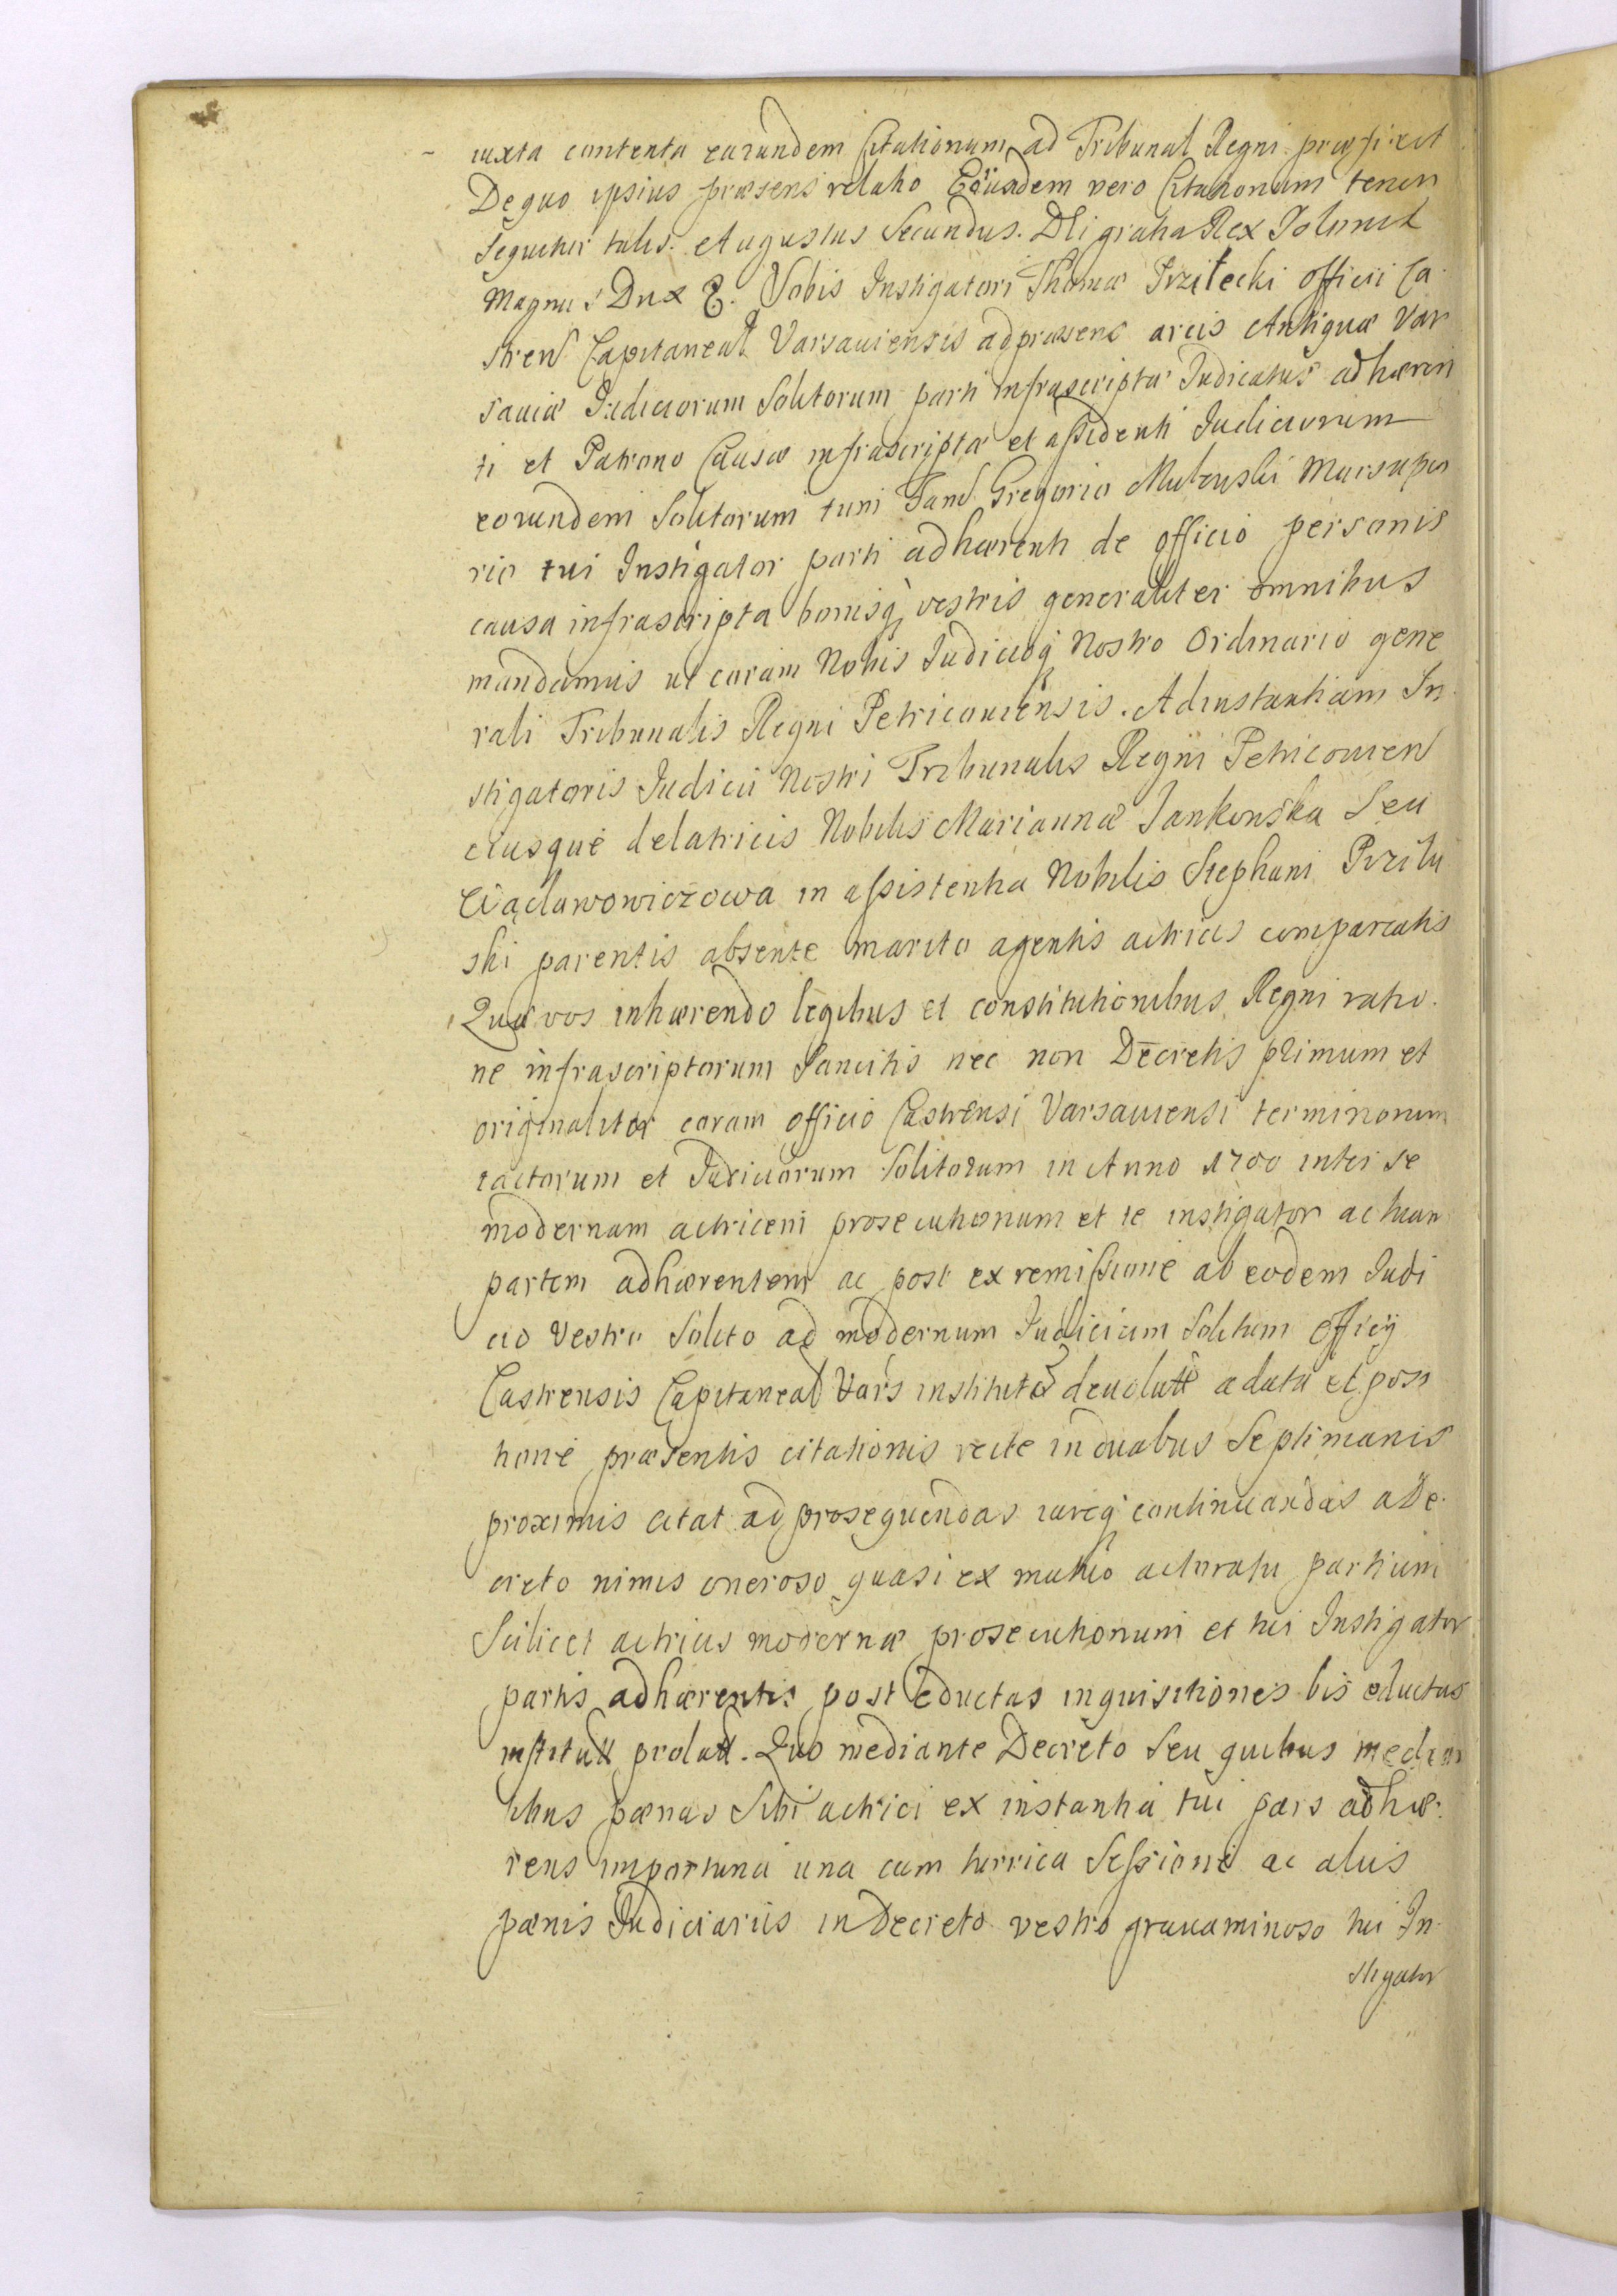 iuxta contenta earundem Citationum ad Tribunal Regni præfixit
De quo ipsius præsens relatio Earundem vero Citationum tenor
sequitur talis. Augustus Secundus. Dei gratia Rex Poloniæ
Magnus Dux &. Vobis Instigatori Thomæ Przitecki officii Ca
stren Capitaneal Varsauiensis ad præsens arcis Antiquæ Var
sauiæ Iudiciorum Solitorum parti infrascriptæ Iudicatus adhæren
ti et Patrono Causæ infrascriptæ et assidenti Iudiciorum
eorundem Solitorum tum Fand Gregorio Mulenski Marsupia
rio tui Instigator parti adhærenti de officio personis
causa infrascripta bonisq vestris generaliter omnibus
mandamus ut coram Nobis Iudicioq Nostro Ordinario gene
rali Tribunalis Regni Petricouiensis. Ad instantiam In
stigatoris Iudicii Nostri Tribunalis Regni Petricouien
eiusque delatricis Nobilis Mariannæ Jankowska Seu
Wacławowiczowa in assistentia Nobilis Stephani Przilu
ski parentis absente marito agentis actricis compareatis
Quæ vos inhærendo legibus et constitutionibus Regni ratio
ne infrascriptorum Sancitis nec non Decretis primum et
originaliter coram officio Castrensi Varsauiensi terminorum
tactorum et Iudiciorum Solitorum in Anno 1700 inter se
modernam actricem prosecutionum et te instigator ac tuam
partem adhærentem ac post ex remissione ab eodem Iudi
cio Vestro Solito ad modernum Iudicium Solitum Officÿ
Castrensis Capitaneal Vars institutæ deuolutæ a data et posi
tione præsentis citationis recte in duabus Septimanis
proximis citat ad prosequendas iureq continuandas a De
creto nimis oneroso quasi ex mutuo actoratu partium
Scilicet actricis modernæ prosecutionum et tui Instigator
partis adhærentis post eductas inquisitiones bis eductas
institutt prolatt. Quo mediante Decreto Seu quibus median
tibus pænas Sibi actrici ex instantia tui pars adhæ
rens importuna una cum turrica Sessione ac aliis
pænis Iudiciariis in Decreto vestro grauaminoso tui In
stigator